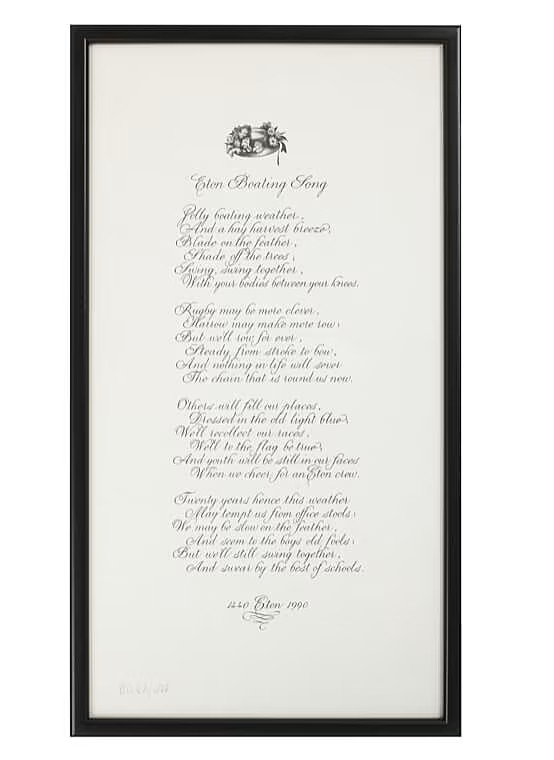 Eton Boating Song
Jolly boating weather,
And a hay harvest breeze,
Blade on the feather,
Shade off the trees,
Swing, swing together,
With your bodies between your knees.
Rugby may be more clever,
Harrow may make more row;
But we'll row for ever,
Steady from stroke to bow,
And nothing in life will sever
The chain that is round us now.
Others will fill our places,
Dressed in the old light blue;
We'll recollect our races,
We'll to the flag be true;
And youth will be still in our faces
When we cheer for an Eton crew.
Twenty years hence this weather
May tempt us from office stools;
We may be slow on the feather,
And seem to the boys old fools;
But we'll still swing together,
And swear by the best of schools.
1440 Eton 1990